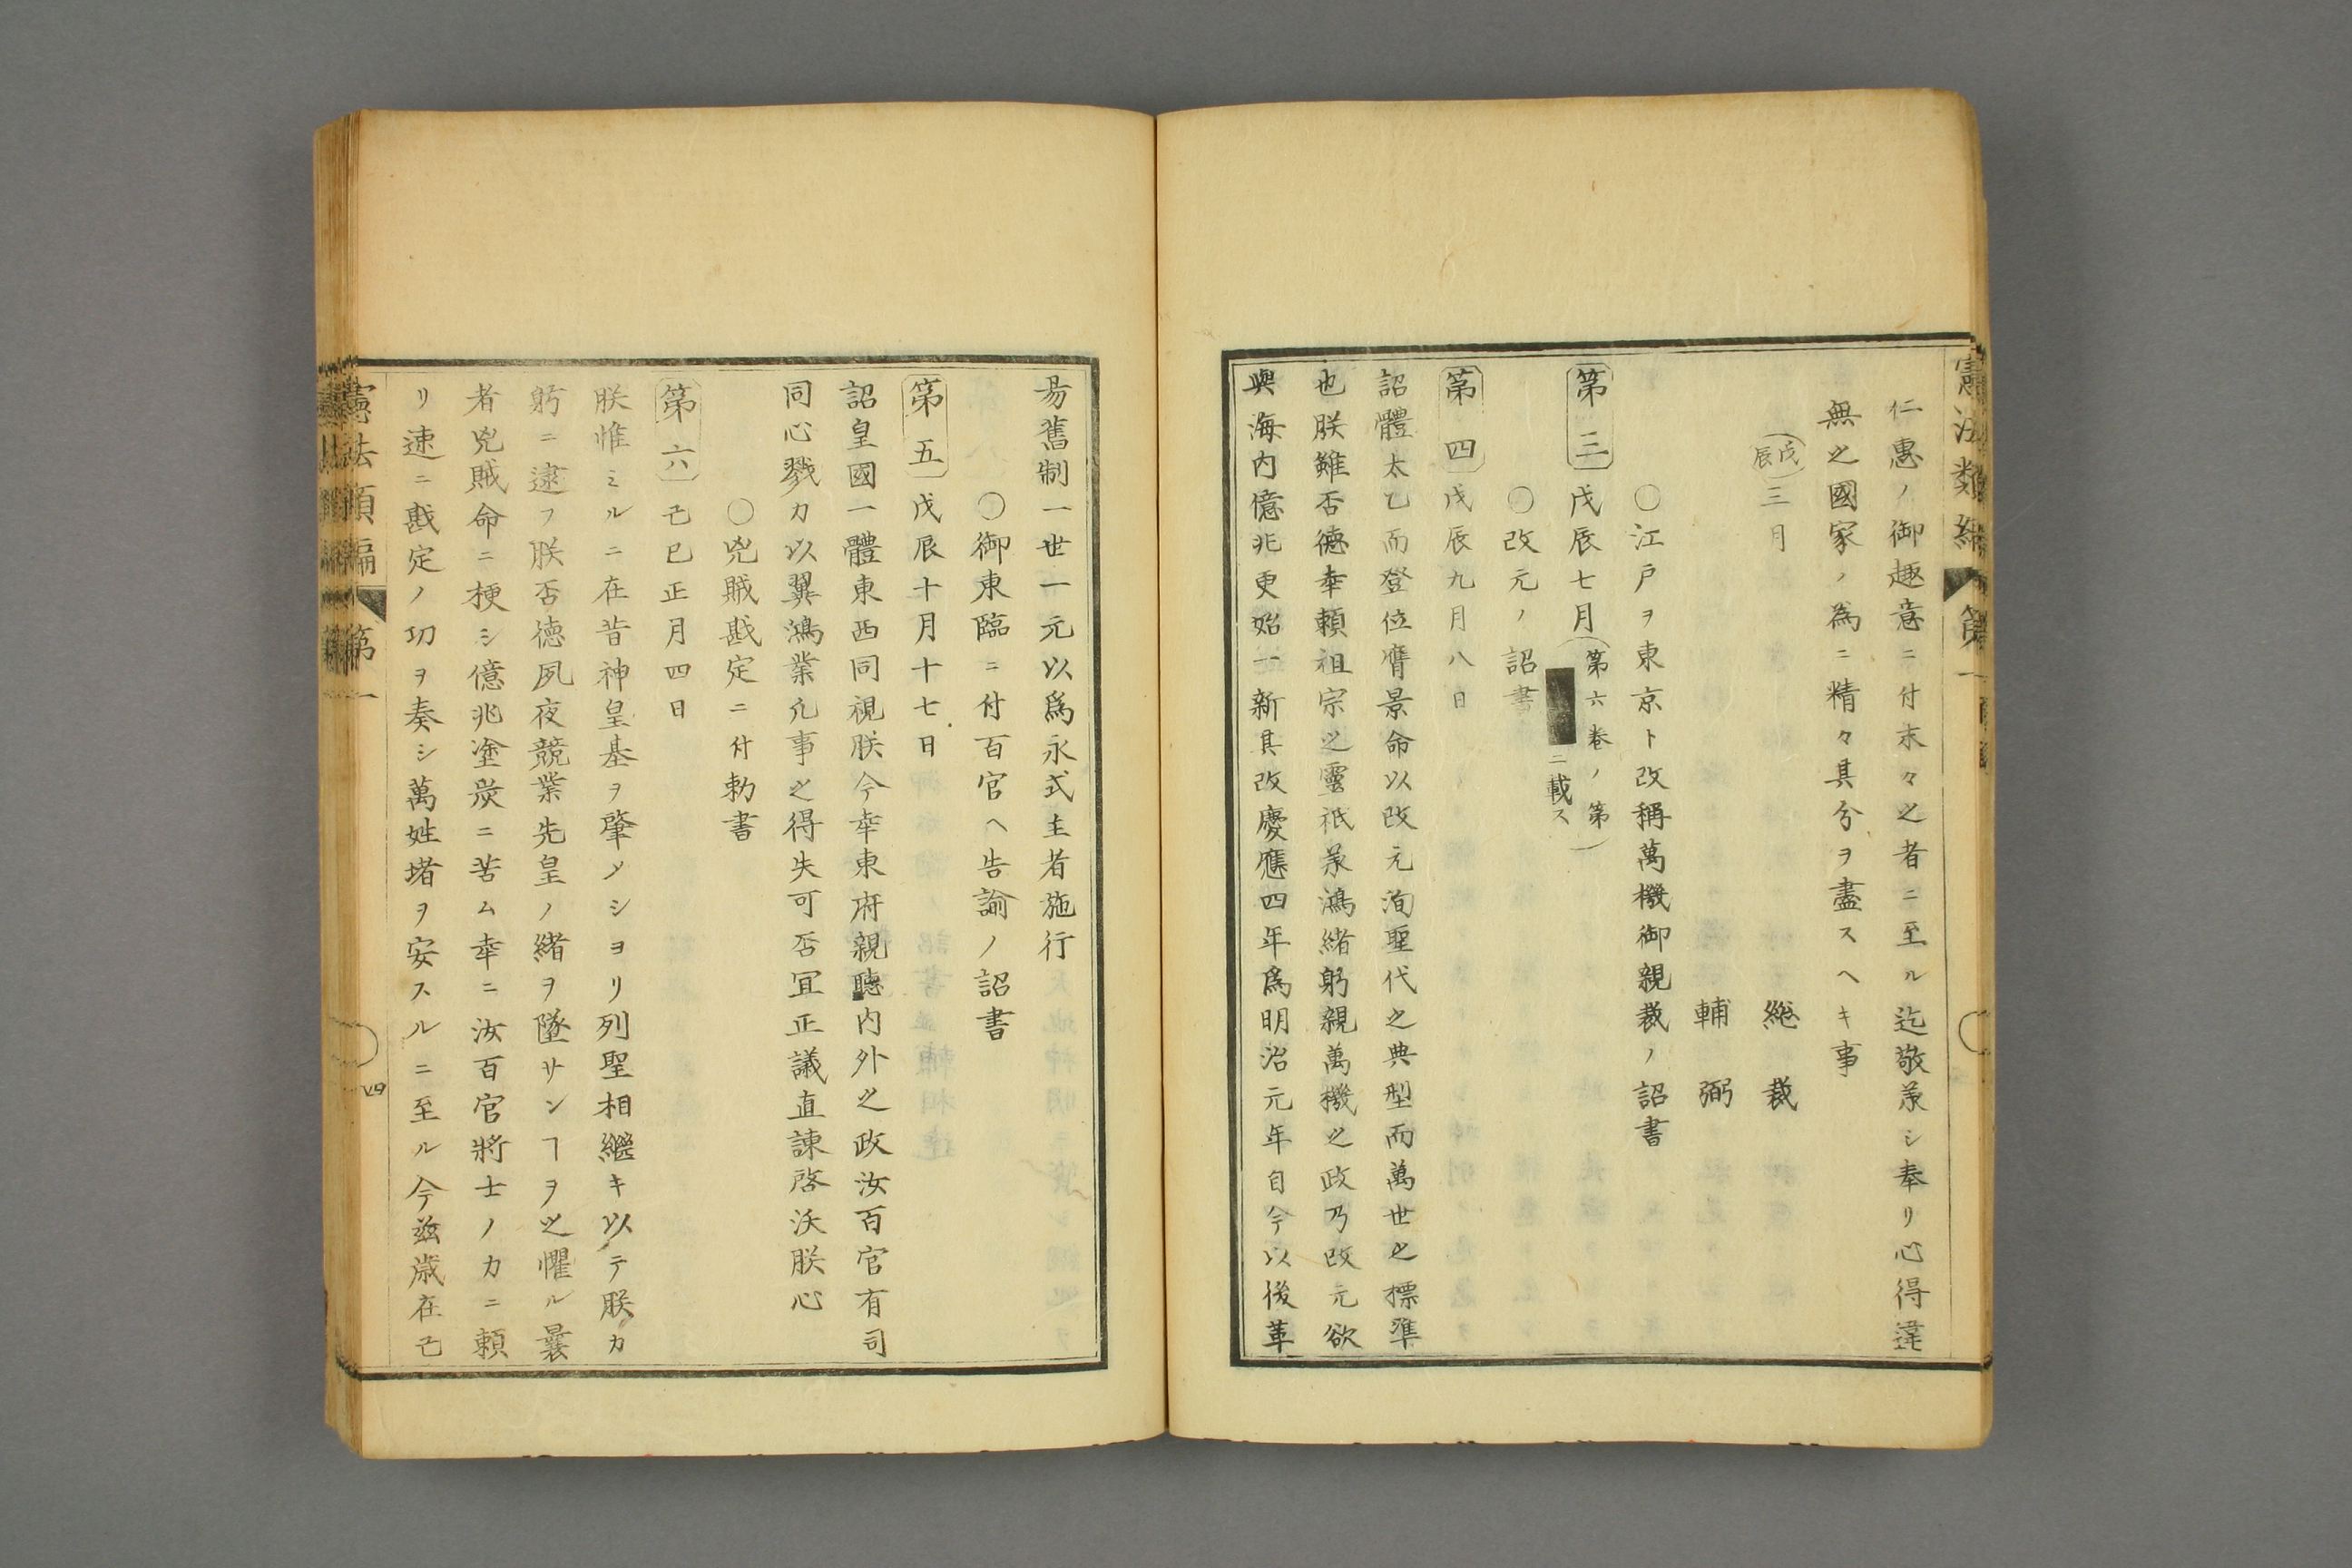 仁惠ノ御趣意ニ付末々之者ニ至ル迄敬承シ奉リ心得違
無之國家ノ為ニ精々其分ヲ盡スヘキ事
(戊辰)三月
總裁
輔弼
○江戸ヲ東京ト改稱萬機御親裁ノ詔書
第三 戊辰七月(第六卷ノ第
ニ載ス)
○改元ノ詔書
第四 戊辰九月八日
詔體太乙而登位膺景命以改元洵聖代之典型而萬世之標準
也朕雖否德幸賴祖宗之靈祇承鴻緒躬親萬機之政乃改元欲
與海内億兆更始一新其改慶應四年爲明治元年自今以後革
易舊制一世一元以爲永式主者施行
○御東臨ニ付百官ヘ告諭ノ詔書
第五 戊辰十月十七日
詔皇國一體東西同視朕今幸東府親聽内外之政汝百官有司
同心戮力以翼鴻業凢事之得失可否冝正議直諫啓沃朕心
○兇賊戡定ニ付勅書
第六 己巳正月四日
朕惟ミルニ在昔神皇基ヲ肇メシヨリ列聖相繼キ以テ朕カ
躬ニ逮フ朕否德夙夜兢業先皇ノ緒ヲ墜サンヿヲ之懼ル曩
者兇賊命ニ梗シ億兆塗炭ニ苦ム幸ニ汝百官將士ノカニ賴
リ速ニ戡定ノ功ヲ奏シ萬姓堵ヲ安スルニ至ル今茲歳在己
憲法類編 第一
憲法類編 第一
四